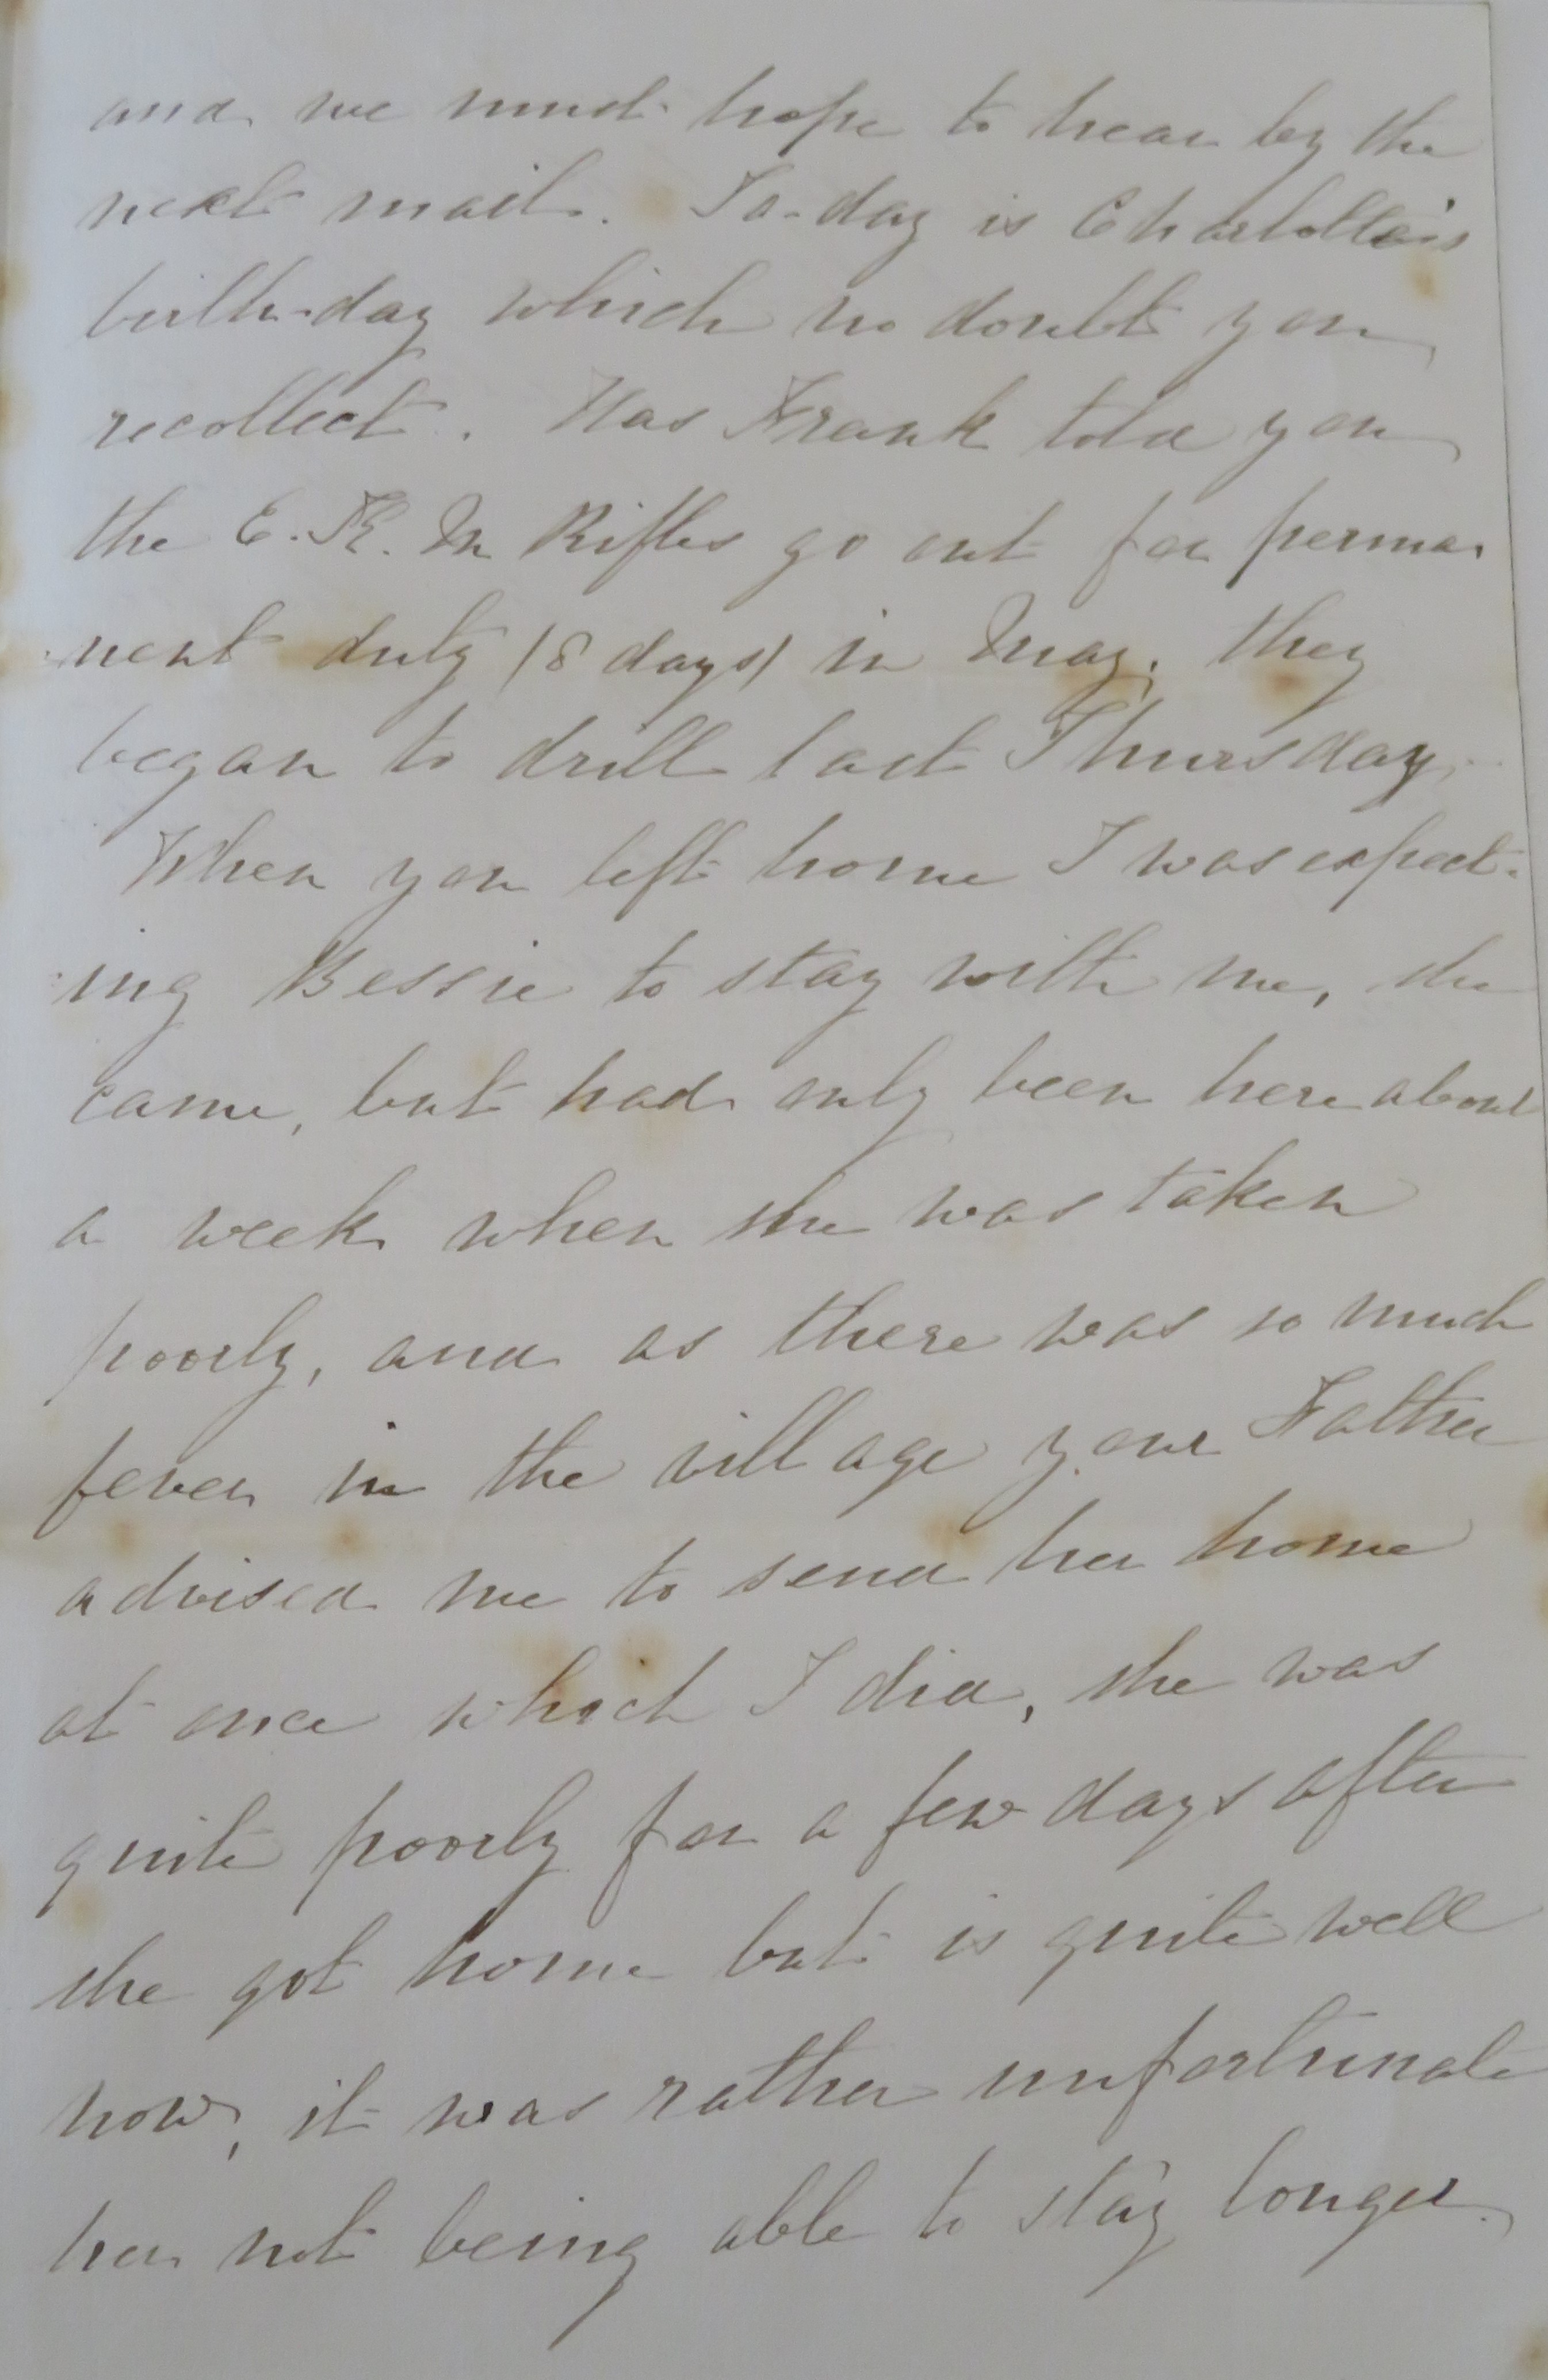 and we must hope to hear by the
next mail. To-day is Charlotte's
birth-day which no doubt you
recollect. Has Frank told you
the E. K. M Rifles go out for perma-
-nent duty (8 days) in May, they
began to drill last Thursday.
When you left home I was expect-
-ing Bessie to stay with me, she
came, but had only been here about
a week when she was taken
poorly, and as there was so much
fever in the village your Father
advised me to send her home
at once which I did, she was
quite poorly for a few days after
she got home but is quite well
now, it was rather unfortunate
her not being able to stay longer.